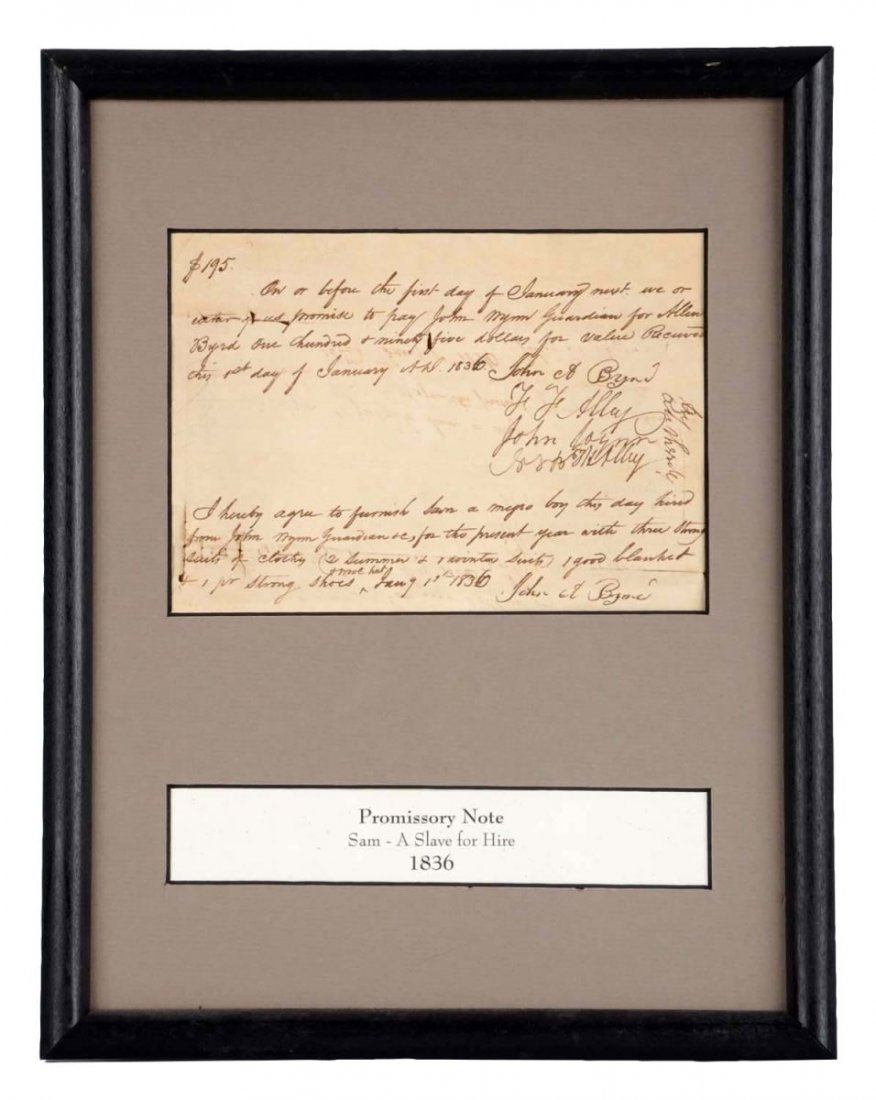 $195.
On or before the first day of January next we or
either of us promise to pay John Wynn Guardian for Allen
Byrd One hundred & ninety five dollars for value Received
this 1st day of January A.D. 1836 John A Byrd
F F Alley
John
Alley
By
I hereby agree to furnish Sam a negro boy this day hired
from John Wynn Guardian &c, for the present year with three strong
suits of cloths (2 summer & 1 winter suits) 1 good blanket
& 1 pr strong shoes & wool hat, Jany 1st 1836 John A Byrd
Promissory Note
Sam - A Slave for Hire
1836